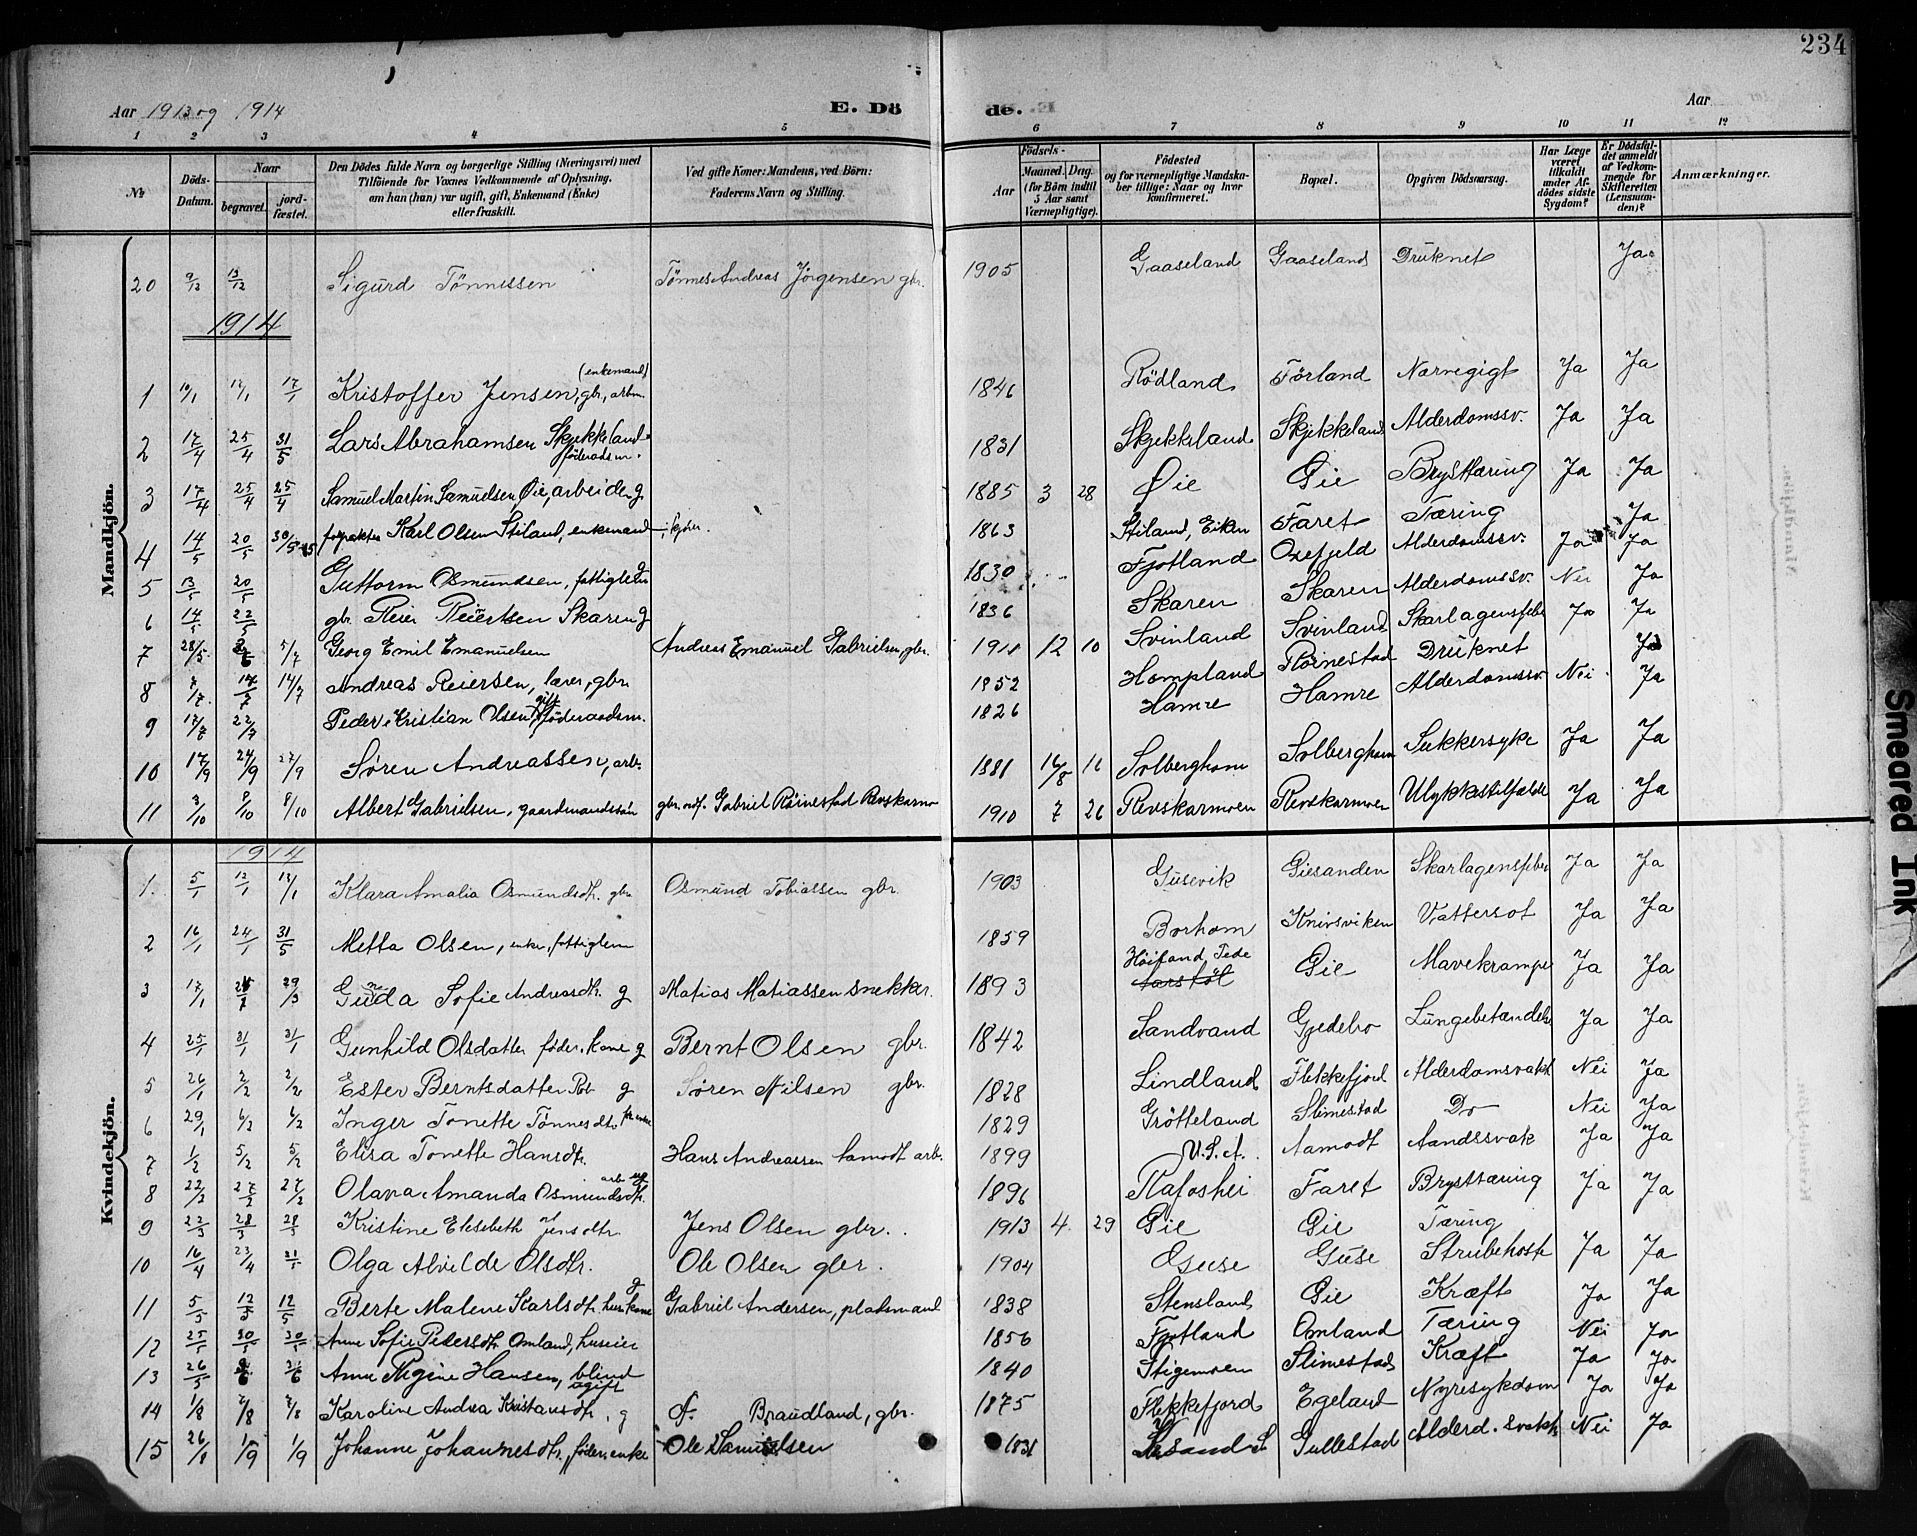 234
Aar 1913 og 1914 E. Dö de. Aar
1 2 3 4 5 6 7 8 9 10 11 12
№ Döds-Datum. Naar begravet. jordfæstet. Den Dödes fulde Navn og borgerlige Stilling (Næringsvei) med Tilföiende for Voxnes Vedkommende af Oplysning, om han (hun) var ugift, gift, Enkemand (Enke) eller fraskilt. Ved gifte Koner: Mandens, ved Börn: Faderens Navn og Stilling. Födsels- Aar Maaned. Dag. (for Börn indtil 5 Aar samt Værnepligtige). Födested og for værnepligtige Mandskaber tillige: Naar og hvor konfirmeret. Bopæl. Opgiven Dödsaarsag. Har Læge været tilkaldt under Afdödes sidste Sygdom? Er Dödsfaldet anmeldt af Vedkommende for Skifteretten (Lensmanden)? Anmærkninger.
Mandkjön.
20 9/12 13/12 Sigurd Tönnessen Tönnes Andreas Jörgensen gbr. 1905 Gaaseland Gaaseland Druknet Ja
1914
1 10/1 17/1 17/1 Kristoffer Jensen, gbr., arbm. (enkemand) 1846 Rödland Förland Nærvegigt Ja Ja
2 17/4 25/4 31/5 Lars Abrahamsen Skjekkeland föderaadsm. 1831 Skjekkeland Skjekkeland Alderdomssv. Ja Ja
3 17/4 25/4 25/4 Samuel Martin Samuelsen Øie, arbeider g. 1885 3 28 Øie Gie Brysttæring Ja Ja
4 14/5 20/5 30/5-15 forpakter Karl Olsen Stiland, enkemand 1863 Stiland, Eiken Faret Tæring Ja
5 13/5 20/5 Guttorm Osmundsen, fattiglem g 1830 Fjotland Oxefjeld Alderdomssv. Ja Ja
6 14/5 22/5 gbr. Reier Reiertsen Skaren g 1836 Skaren Skaren Alderdomssv. Nei Ja
7 28/5 5/7 Georg Emil Emanuelsen Andreas Emanuel Gabrielsen, gbr. 1911 12 10 Svinland Svinland Skarlagensfeber Ja Ja
8 7/7 14/7 14/7 Andreas Reiersen, lærer, gbr. 1852 Hompland Rörnestad Druknet Ja
9 17/7 22/7 Peder Kristian Olsen gift föderaadsm. 1826 Hamre Hamre Alderdomssv. Nei Ja
10 17/9 24/9 27/9 Sören Andreassen, arb. 1881 16/8 11 Solberghom Solberghom Sukkersyke Ja Ja
11 3/10 8/10 8/10 Albert Gabrielsen, gaardmandssön gbr. ordf. Gabriel Rörnestad Revskarmo 1910 7 26 Revskarmoen Revskarmoen Ulykkestilfælde Ja Ja
Kvindekjön.
1914
1. 5/1 13/1 13/1 Klara Amalia Osmundsdtr. gbr Osmund Tobiassen gbr. 1903 Gusevik Giesanden Skarlagensfeber Ja Ja
2 16/1 24/1 31/5 Metta Olsen, enke, fattiglem 1859 Borhom Knivsviken Vattersot Ja Ja
3 17/1 29/3 Guda Sofie Andreasdtr. g Matias Matiassen snekker. 1893 Höiland, Tede Gie Mavekrampe Ja Ja
4 25/1 31/1 31/1 Gunhild Olsdatter föder. kone g Bernt Olsen gbr. 1842 Sandvand Gjedebo Lungebetændelse Ja Ja
5 26/1 2/2 2/2 Ester Berntsdatter Rob g Sören Nilsen gbr. 1828 Lindland Flekkefjord Alderdomsvakh. Nei Ja
6 29/1 6/2 6/2 Inger Tonette Tönnesdtr. 1829 Grötteland Slimestad Do Nei Ja
7 1/2 5/2 5/2 Elisa Tonette Hansdtr. Hans Andreassen Aamodt arb. 1899 U.S.A. Aamodt Aandssvak Ja Ja
8 22/2 27/2 27/2 Olava Amanda Osmundsdtr. arb. ug 1896 Rafoshei Faret Brysttæring Ja Ja
9 22/3 28/3 28/3 Kristine Elesebeth Jensdtr. Jens Olsen gbr. 1913 4. 29 Gie Gie Tæring
10 16/4 23/4 21/5 Olga Alvilde Olsdtr. Ole Olsen gbr. 1904 Guse Guse Strubehoste Ja Ja
11 5/5 12/5 12/5 Berte Malene Karlsdtr. husm.kone g Gabriel Andersen, platsmand 1838 Stensland Gie Kræft Ja Ja
12 25/5 30/5 30/5 Anne Sofie Pedersdtr. Omland, huseier 1856 Fjotland Omland Tæring Nei Ja
13 26/5 2/6 Anne Regine Hansen, blind ugift 1840 Stigemoen Slimestad Kræft Ja Ja
14 1/8 7/8 7/8 Karoline Andrea Kristansdtr., g A. Braudland, gbr. 1875 Flekkefjord Egeland Nyresykdom Ja Ja
15 26/8 1/9 1/9 Johanne Johannesdtr., föder.enke Ole Samuelsen 1831 Gullestad Alderd. svakh. Nei Ja
Smeared Ink